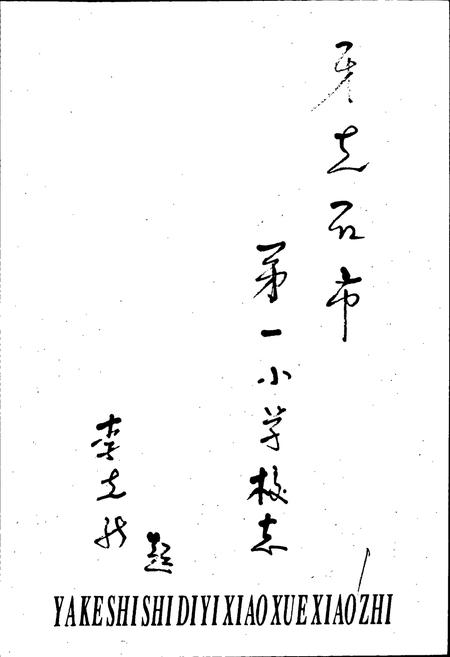 牙克石市
第一小学校志
李克
题
YAKESHISHIDIYIXIAOXUEXIAOZHI